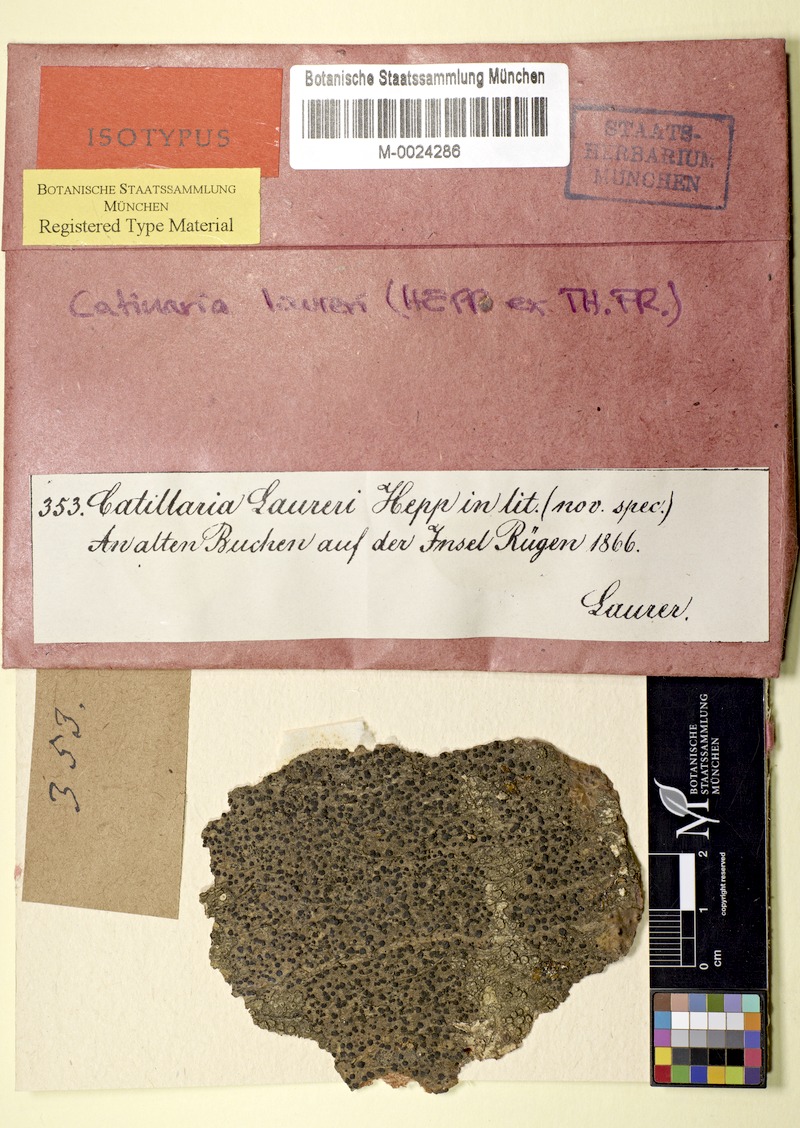 ISOTYPUS
Botanische Staatssammlung München
M-0024286
STAATS-
HERBARIUM
MÜNCHEN
BOTANISCHE STAATSSAMMLUNG
MÜNCHEN
Registered Type Material
Catinaria laureri (HEPP ex TH. FR.)
353. Catillaria Laureri Hepp in lit. (nov. spec.)
An alten Buchen auf der Insel Rügen 1866.
Laurer.
353.
BOTANISCHE
STAATSSAMMLUNG
MÜNCHEN
M
0 1 2
cm
copyright reserved